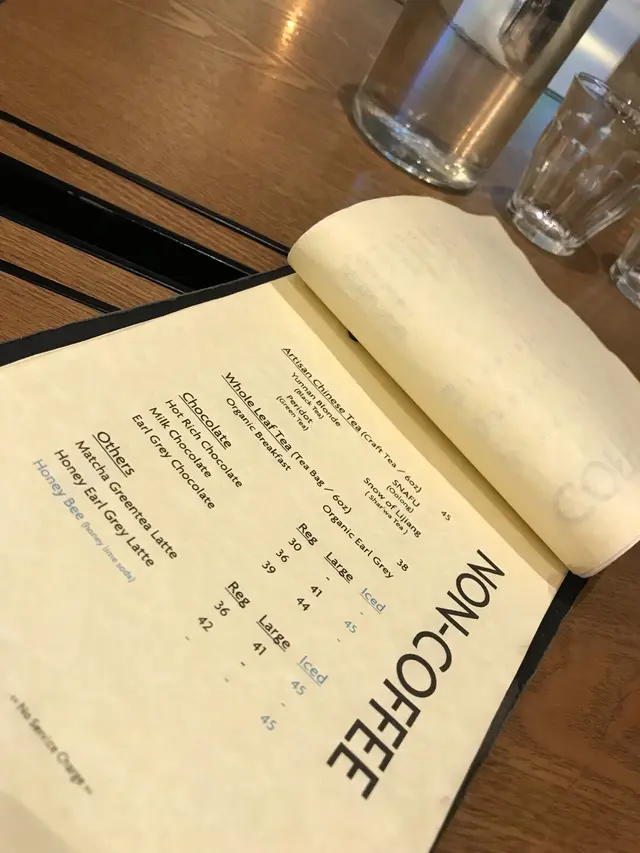 NON-COFFEE
Artisan Chinese Tea (Craft Tea / 6oz) 45
Yunnan Blonde SNAFU
(Black Tea) (Oolong)
Peridot Snow of Lijiang
(Green Tea) Tea)
Whole Leaf Tea (Tea Bag / 6oz) 38
Organic Breakfast Organic Earl Grey
Chocolate Reg Large Iced
Hot Rich Chocolate 30 - -
Milk Chocolate 36 41 45
Earl Grey Chocolate 39 44 -
Others Reg Large Iced
Matcha Greentea Latte 36 41 45
Honey Earl Grey Latte 42 - -
Honey Bee (honey lime soda) - - 45
No Service Charge